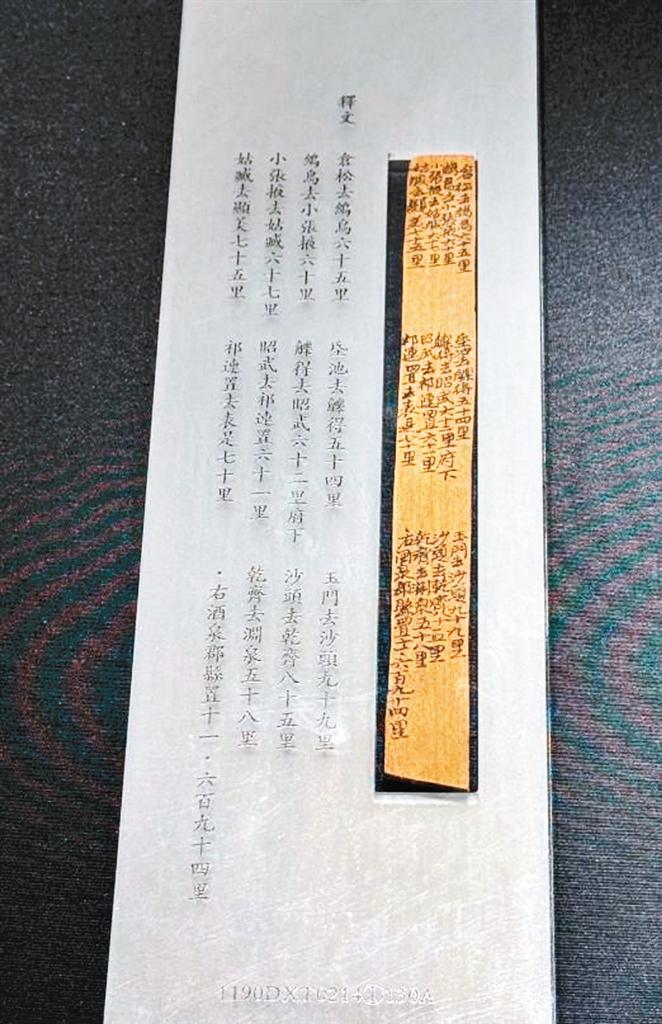 釋文
倉松去鸞鳥六十五里
鸞鳥去小張掖六十里
小張掖去姑臧六十七里
姑臧去顯美七十五里
氐池去觻得五十四里
觻得去昭武六十二里府下
昭武去祁連置六十一里
祁連置去表是七十里
玉門去沙頭九十九里
沙頭去乾齊八十五里
乾齊去淵泉五十八里
·右酒泉郡縣置十一·六百九十四里
倉松去鸞鳥六十五里
鸞鳥去小張掖六十里
小張掖去姑臧六十七里
姑臧去顯美七十五里
氐池去觻得五十四里
觻得去昭武六十二里府下
昭武去祁連置六十一里
祁連置去表是七十里
玉門去沙頭九十九里
沙頭去乾齊八十五里
乾齊去淵泉五十八里
右酒泉郡縣置十一六百九十四里